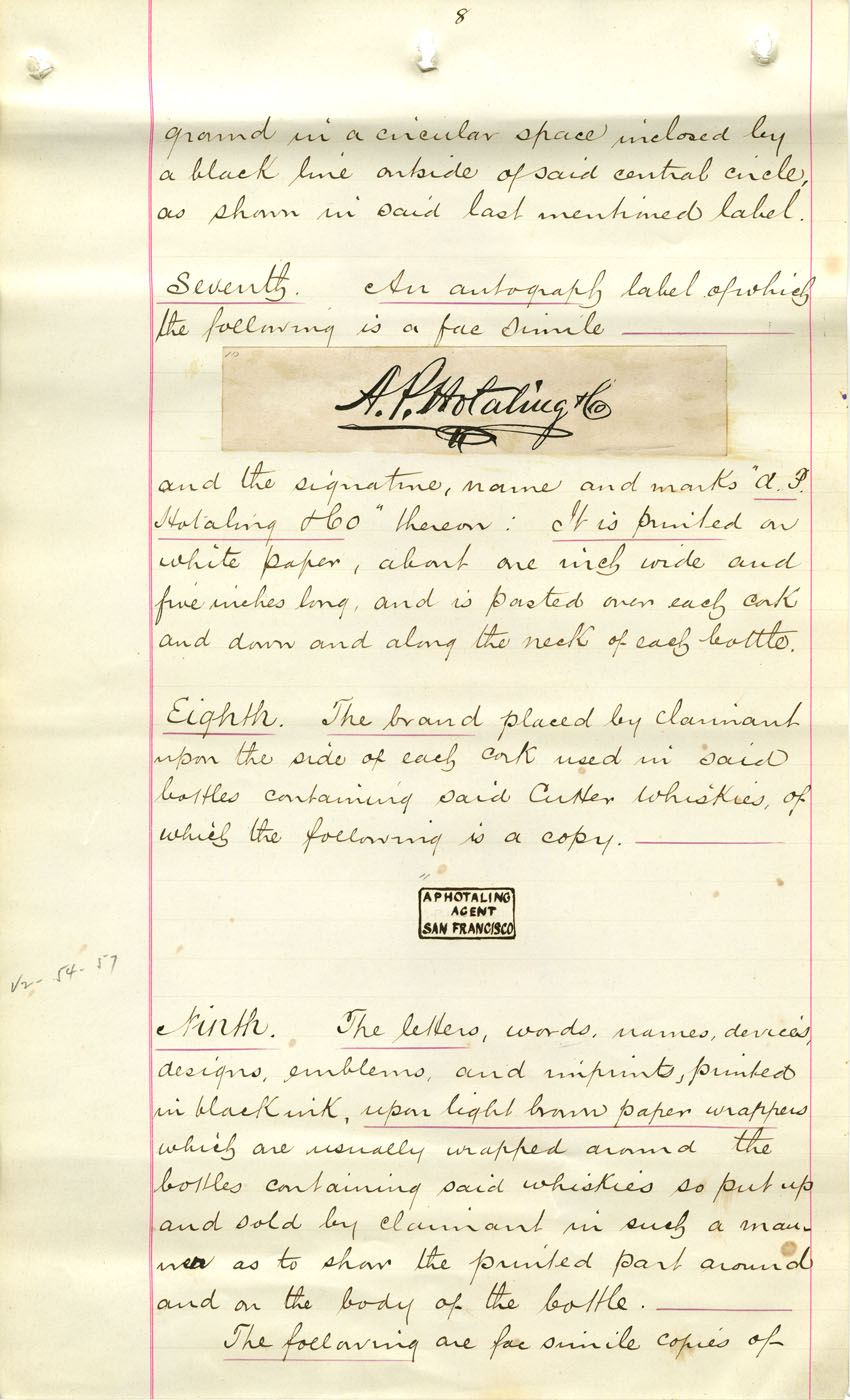 8
ground in a circular space inclosed by
a black line outside of said central circle,
as shown in said last mentioned label.
Seventh. An autograph label of which
the following is a fac simile
10
A. P. Hotaling & Co
and the signature, name and marks "A. P.
Hotaling & Co" thereon: It is printed on
white paper, about one inch wide and
five inches long, and is pasted over each cork
and down and along the neck of each bottle.
Eighth. The brand placed by claimant
upon the side of each cork used in said
bottles containing said Cutter Whiskies, of
which the following is a copy.
11
A P HOTALING
AGENT
SAN FRANCISCO
54-57
Ninth. The letters, words, names, devices,
designs, emblems, and imprints, printed
in black ink, upon light brown paper wrappers
which are usually wrapped around the
bottles containing said whiskies so put up
and sold by claimant in such a man-
ner as to show the printed part around
and on the body of the bottle.
The following are fac simile copies of